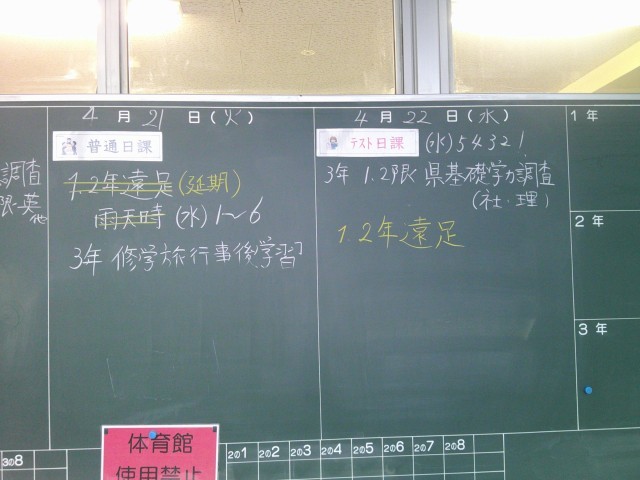 調査
限・英
他
4月21日(火)
普通日課
1.2年遠足(延期)
雨天時(水)1~6
3年 修学旅行事後学習
4月22日(水)
テスト日課 (水)54321
3年 1.2限 県基礎学力調査
(社・理)
1.2年遠足
1年
2年
3年
体育館
使用禁止
3の8
2の1 2の2 2の3 2の4 2の5 2の6 2の7 2の8